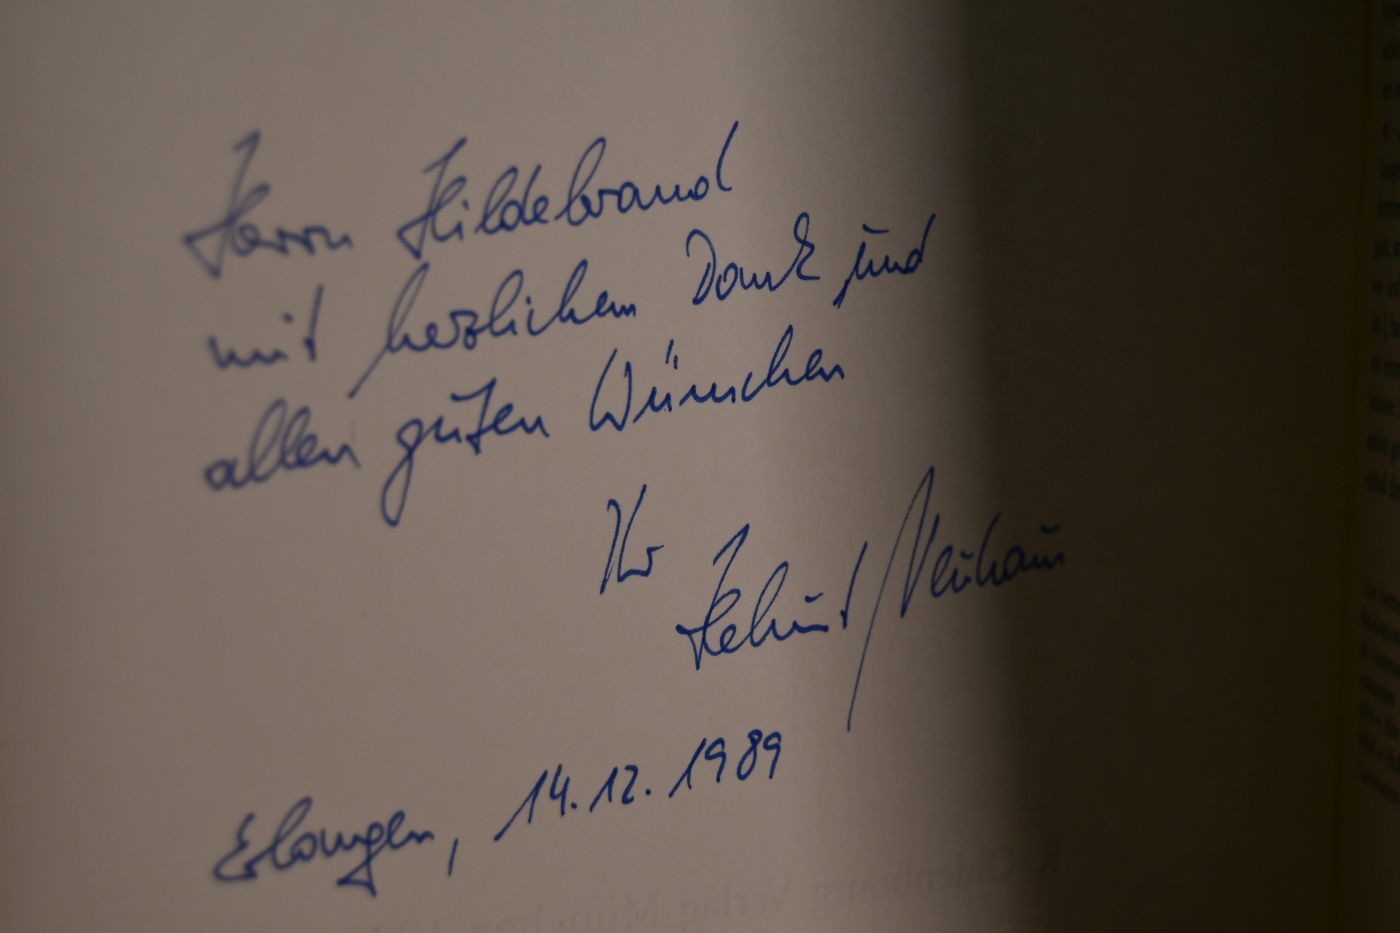 Herrn Hildebrand
mit herzlichem Dank und
allen guten Wünschen
Ihr
Helmut Neuhaus
Erlangen, 14.12.1989
R. Oldenbourg Verlag München